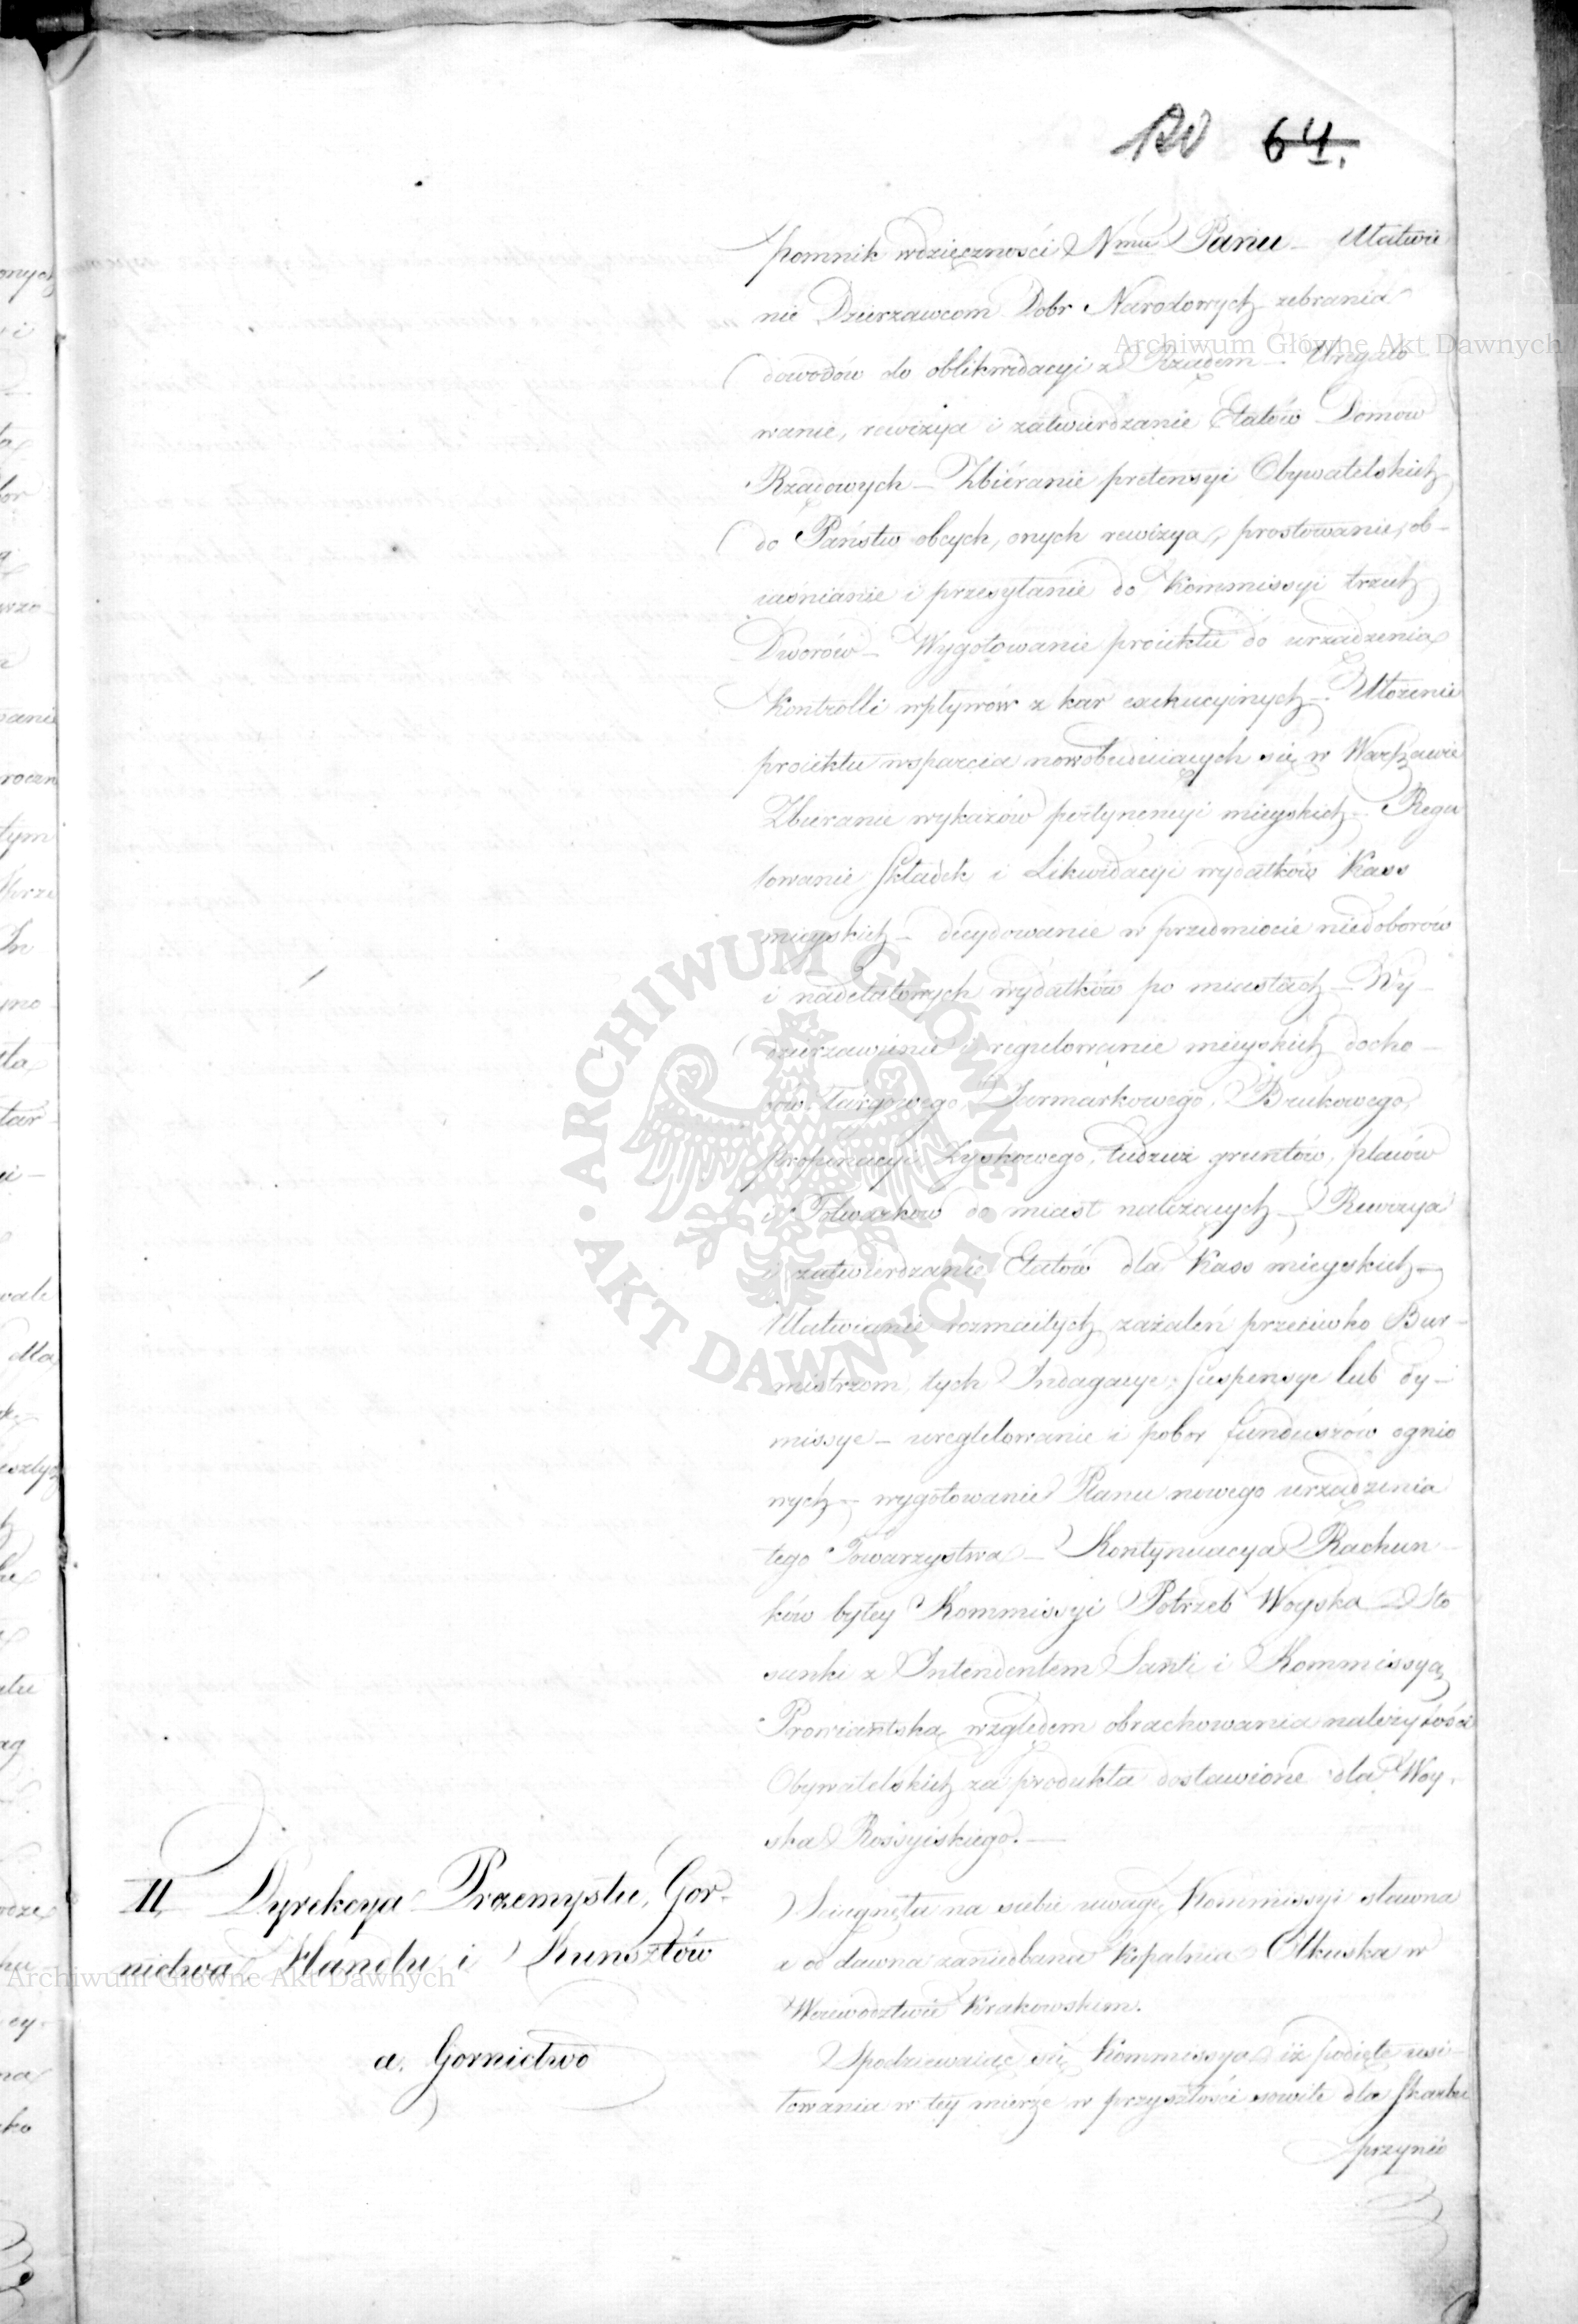 120 64.
pomnik wdzięczności Nmu Panu – Ułatwie
nie Dzierzawcom Dobr Narodowych zebrania
dowodów do oblikwidacyi z Rządem – Uregulo
wanie, rewizya i zatwierdzanie Etatów Domow
Rządowych – Zbiéranie pretensyi Obywatelskich
do Państw obcych, onych rewizya, prostowanie, ob-
iasnianie i przesyłanie do Kommissyi trzech
Dworów – Wygotowanie proiektu do urządzenia
Kontrolli wpływów z kar exekucyinych – Ułożenie
proiektu wsparcia nowobuduiących się w Warszawie
Zbieranie wykazów pertynencyi mieyskich – Regu
lowanie Składek i Likwidacyi wydatków Kass
mieyskich – decydowanie w przedmiocie niedoborów
i nadetatowych wydatków po miastach – Wy-
dzierzawienie i regulowanie mieyskich docho-
dów: Targowego, Jarmarkowego, Brukowego,
propinacyi, tudzież gruntów, placów
i Folwarków do miast należących – Rewizya
i zatwierdzanie Etatów dla Kass mieyskich –
Ułatwianie rozmaitych zażaleń przeciwko Bur-
mistrzom, tych Indagacye, Suspensye lub dy-
missye – uregulowanie i pobor funduszów ognio
wych – wygotowanie Planu nowego urządzenia
tego Towarzystwa – Kontynuacya Rachun-
ków byłey Kommissyi Potrzeb Woyska – Sto
sunki z Intendentem Santi i Kommissyą
Prowiantską względem obrachowania należytości
Obywatelskich za produkta dostawione dla Woy-
ska Rossyiskiego. –
II Dyrekcya Przemysłu, Gor-
nictwa, Handlu i Kunsztów
a. Gornictwo
Sciągnęła na siebie uwagę Kommissyi sławna
a od dawna zaniedbana Kopalnia Olkuska w
Woiewodztwie Krakowskim.
Spodziewaiąc się Kommissya iż podięte usi-
łowania w tey mierze w przyszłości sowite dla Skarbu
przynio
Archiwum Główne Akt Dawnych
ARCHIWUM GŁÓWNE AKT DAWNYCH
Archiwum Główne Akt Dawnych